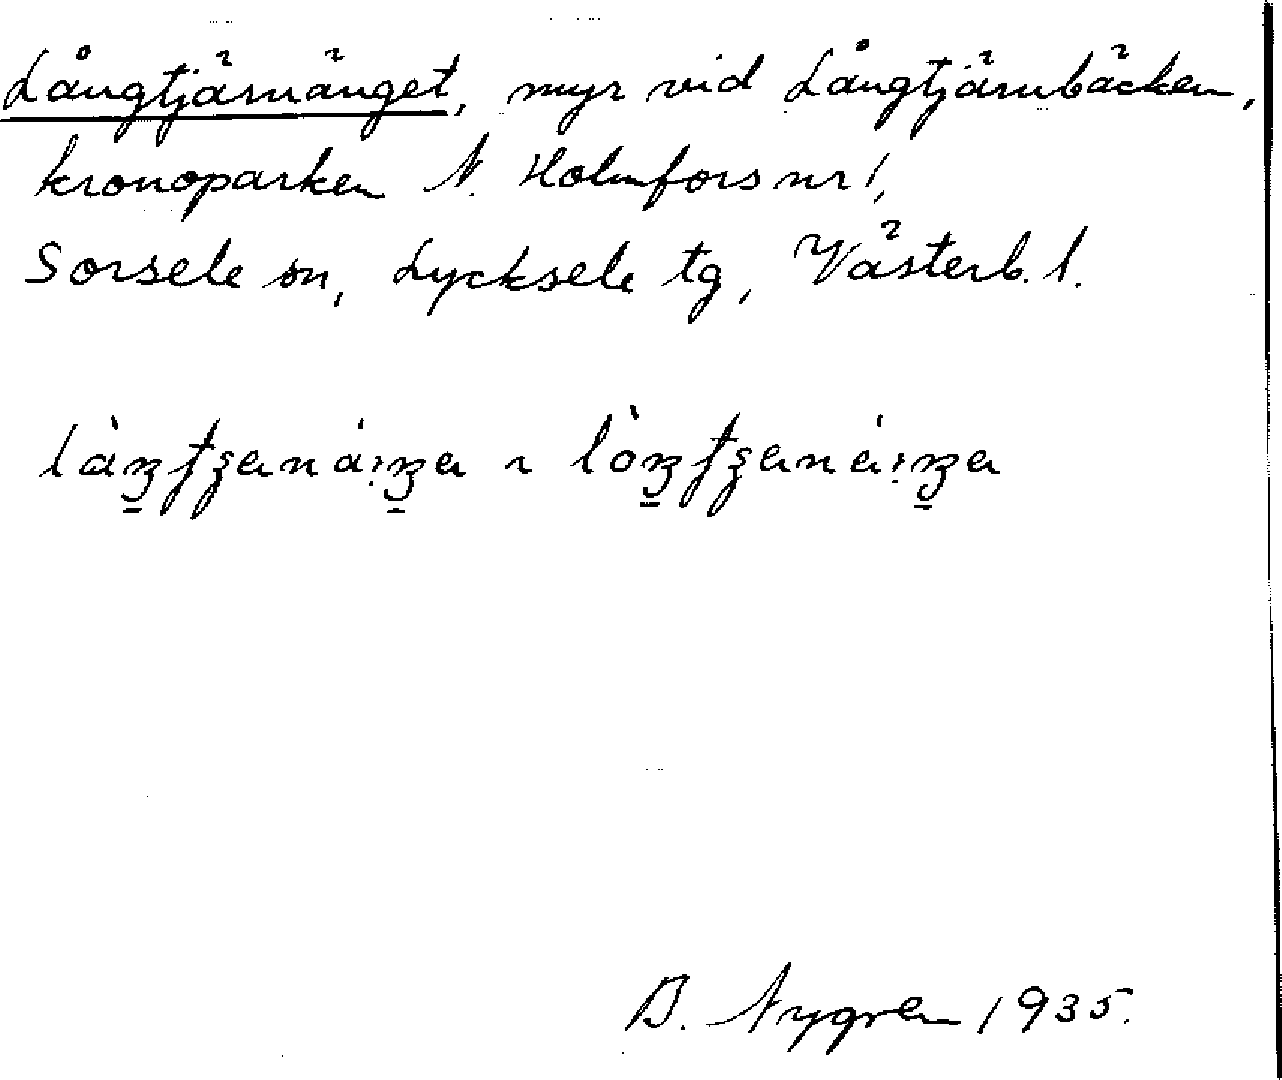 Långtjärnänget, myr vid Långtjärnbäcken,
kronoparken N. Holmfors nr 1,
Sorsele sn, Lycksele tg, Västerb. l.
B. Nygren 1935.